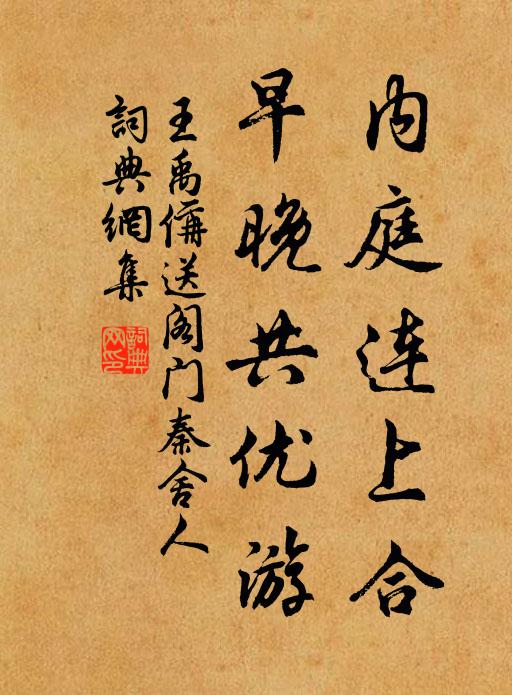 内庭连上合
早晚共优游
王禹偁送阁门秦舍人
詞典網集
詞典网印